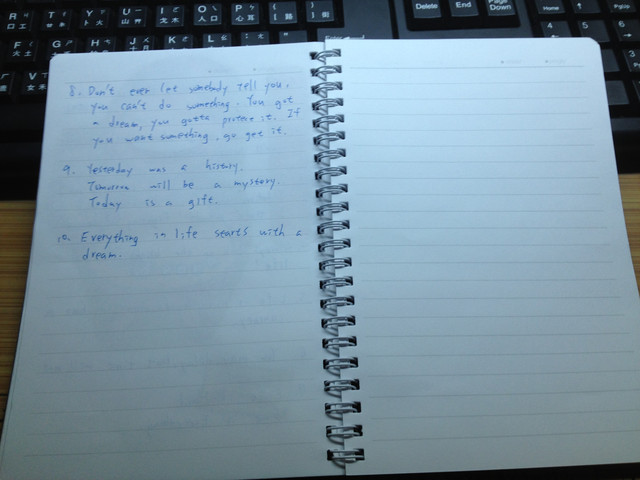 Delete
End
Page Down
PgUp
8. Don't ever let somebody tell you,
you can't do something. You got
a dream, you gotta protect it. If
you want something, go get it.
9. Yesterday was a history.
Tomorrow will be a mystery.
Today is a gift.
10. Everything in life starts with a
dream.